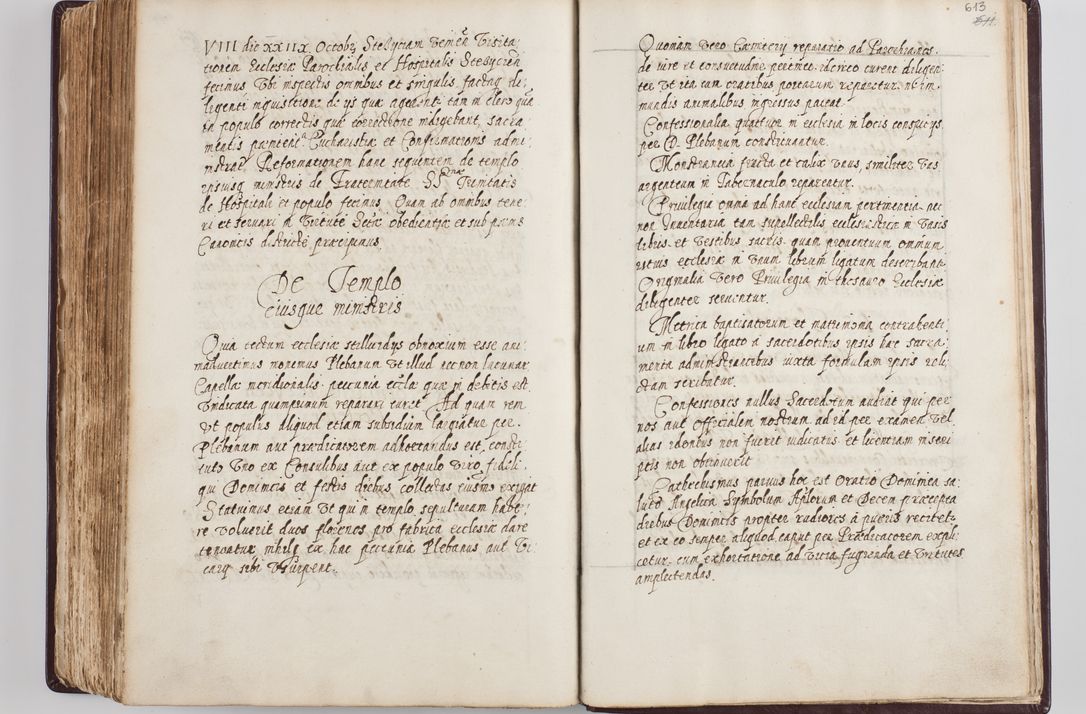 VIII die XXIIX Octobr Stesyciam venien Visita
tionem Ecclesiæ Parochialis et Hospitalis Stesycien
fecimus Vbi inspectis omnibus et singulis, factaq di
ligenti inquisitione de ijs quæ agerent tam in clero quā
in populo correctis quæ correctione indigebant, sacra
mentis pœnitenc Eucharistiæ et Confirmationis admi
nistrat Reformationem hanc sequentem de templo
ipsiusq ministris de Fraternitate SS Trinitatis
de Hospitali et populo fecimus. Quam ab omnibus tene
ri et seruari in Virtute Sctæ obedientiæ et sub pœnis
Canonicis districte præcipimus.
De Templo
eiusque ministris
Quia tectum ecclesiæ stillicidys obnoxium esse ani
maduertimus monemus Plebanum vt illud nec non lacunar
Capellæ meridionalis pecunia eccliæ quæ in debitis est
Vindicata quamprimum reparari curet Ad quam rem
vt populus aliquod etiam subsidium largiatur per
Plebanum aut prædicatorem adhortandus est, consti
tuto Vno ex Consulibus aut ex populo viro fideli
qui Dominicis et festis diebus collectas eiusmo exigat
Statuimus etiam vt qui in templo sepulturam habe
re voluerit duos florenos pro fabrica ecclesiæ dare
teneatur nihilq ex hac pecunia Plebanus aut Vi
carij sibi vsurpent.
613
Quoniam vero Cæmiterij reparatio ad Parochianos
de iure et consuetudine pertinet idcirco curent diligen
ter vt ita cum cratibus portarum reparetur ne im
mundis animalibus ingressus pateat.
Confessionalia quattuor in ecclesia in locis conspicuis
per D. Plebanum constituantur.
Monstrantia fracta et calix vnus, similiter vas
argenteum in Tabernaculo reparentur.
Priuilegia omnia ad hanc ecclesiam pertinentia nec
non Inuentaria tam supellectilis ecclesiasticæ in Vasis
libris et Vestibus sacris quam prouentuum omnium
istius ecclesiæ in vnum librum ligatum describant
Originalia vero Priuilegia in thesauro Ecclesiæ
diligenter seruentur.
Metrica baptisatorum et matrimonia contrahenti
um in libro ligato à sacerdotibus ipsis hæc sacra
menta administrantibus iuxta formulam ipsis reli
ctam scribatur.
Confessiones nullus Sacerdotum audiat qui per
nos aut Officialem nostrum ad id per examen vel
alias idoneus non fuerit iudicatus et licentiam in scri
ptis non obtinuerit
Cathechismus paruus hoc est Oratio Dominica sa
lutō Angelica Symbolum Aplorum et Decem præcepta
diebus Dominicis propter rudiores à pueris recitet
et ex eo semper aliquod caput per Prædicatorem expli
cetur cum exhortatione ad vitia fugienda et virtutes
amplectendas.